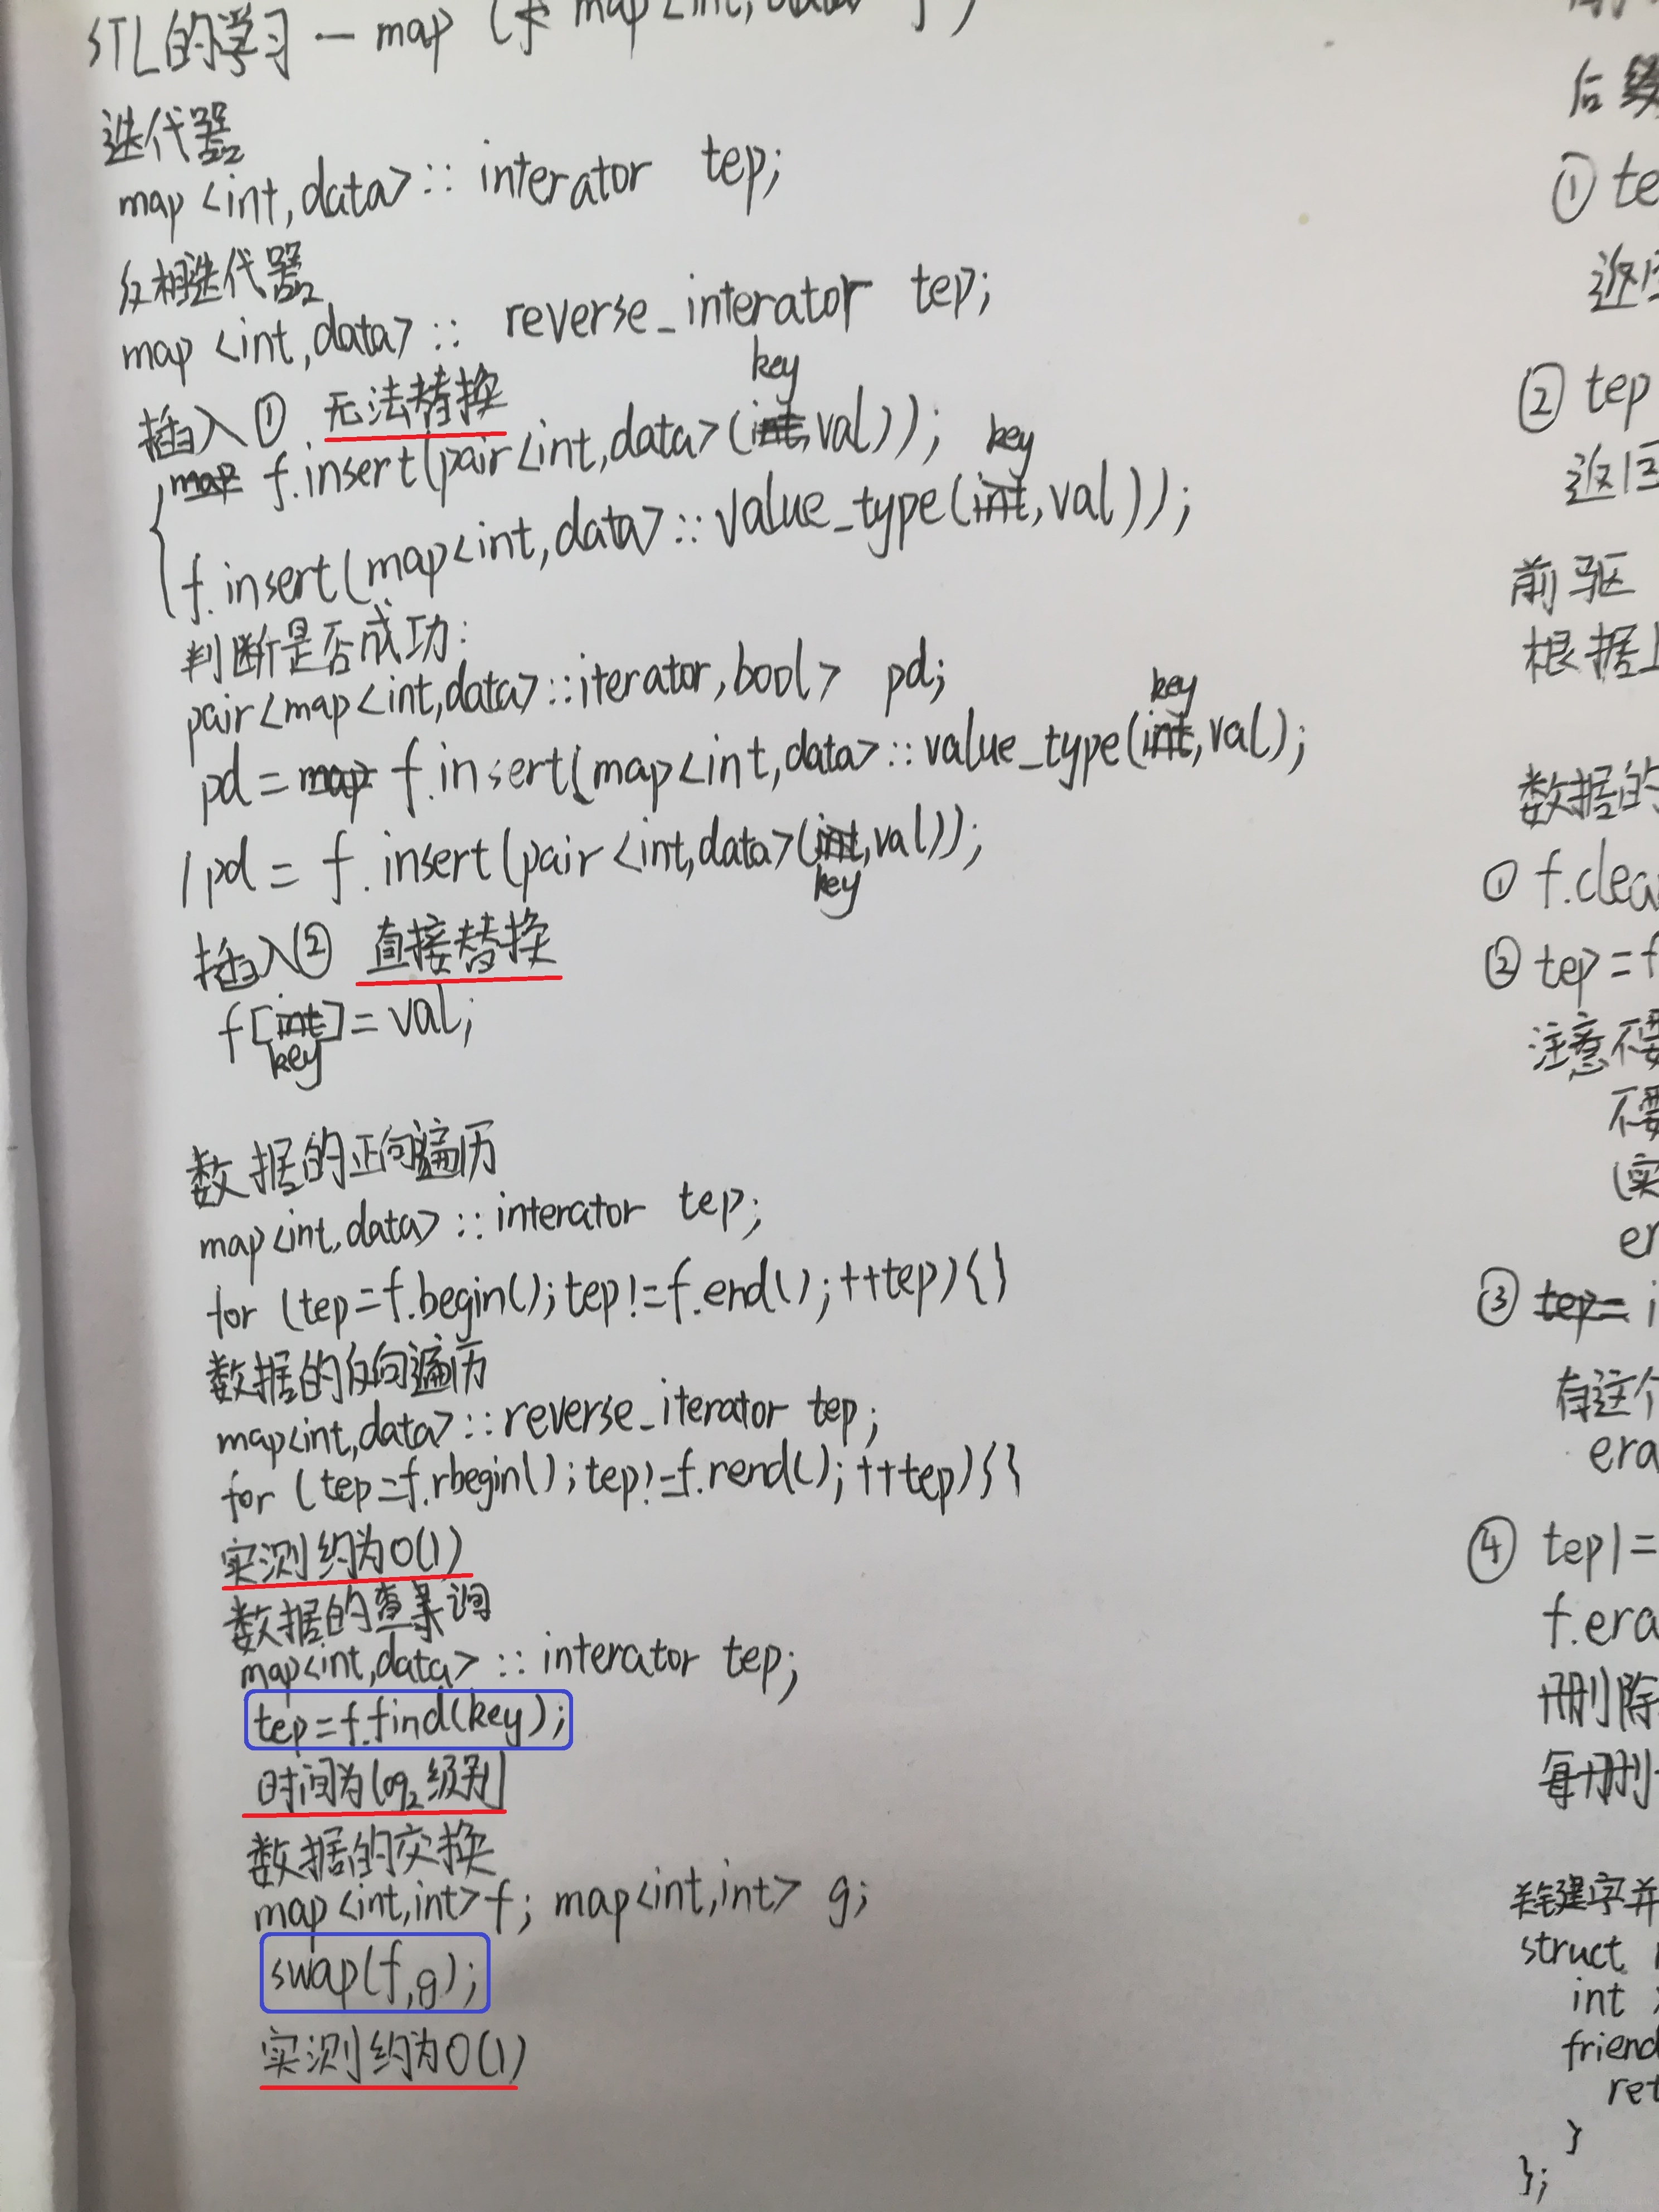 STL的学习 — map
迭代器
map<int,data>:: interator tep;
反相迭代器
map<int,data>:: reverse_interator tep;
插入① 无法替换
key
map f.insert(pair<int,data>(int,val));
key
f.insert(map<int,data>::value_type(int,val));
判断是否成功:
pair<map<int,data>::iterator,bool> pd;
key
pd = map f.insert(map<int,data>::value_type(int,val);
/pd = f.insert(pair<int,data>(int,val));
key
插入② 直接替换
f[int]=val;
key
数据的正向遍历
map<int,data>::interator tep;
for (tep=f.begin();tep!=f.end();++tep){}
数据的反向遍历
map<int,data>::reverse_iterator tep;
for (tep=f.rbegin();tep!=f.rend();++tep){}
实测约为O(1)
数据的查询
map<int,data>:: interator tep;
tep=f.find(key);
时间为log₂级别
数据的交换
map<int,int>f; map<int,int> g;
swap(f,g);
实测约为O(1)
后
① te
② tep
返回
前驱
根据
数据的
① f.clea
② tep=f
注意不要
不要
er
③ tep= i
有这个
era
④ tep1=
f.era
删除
每删
关键字并
struct
int
friend
ret
}
};